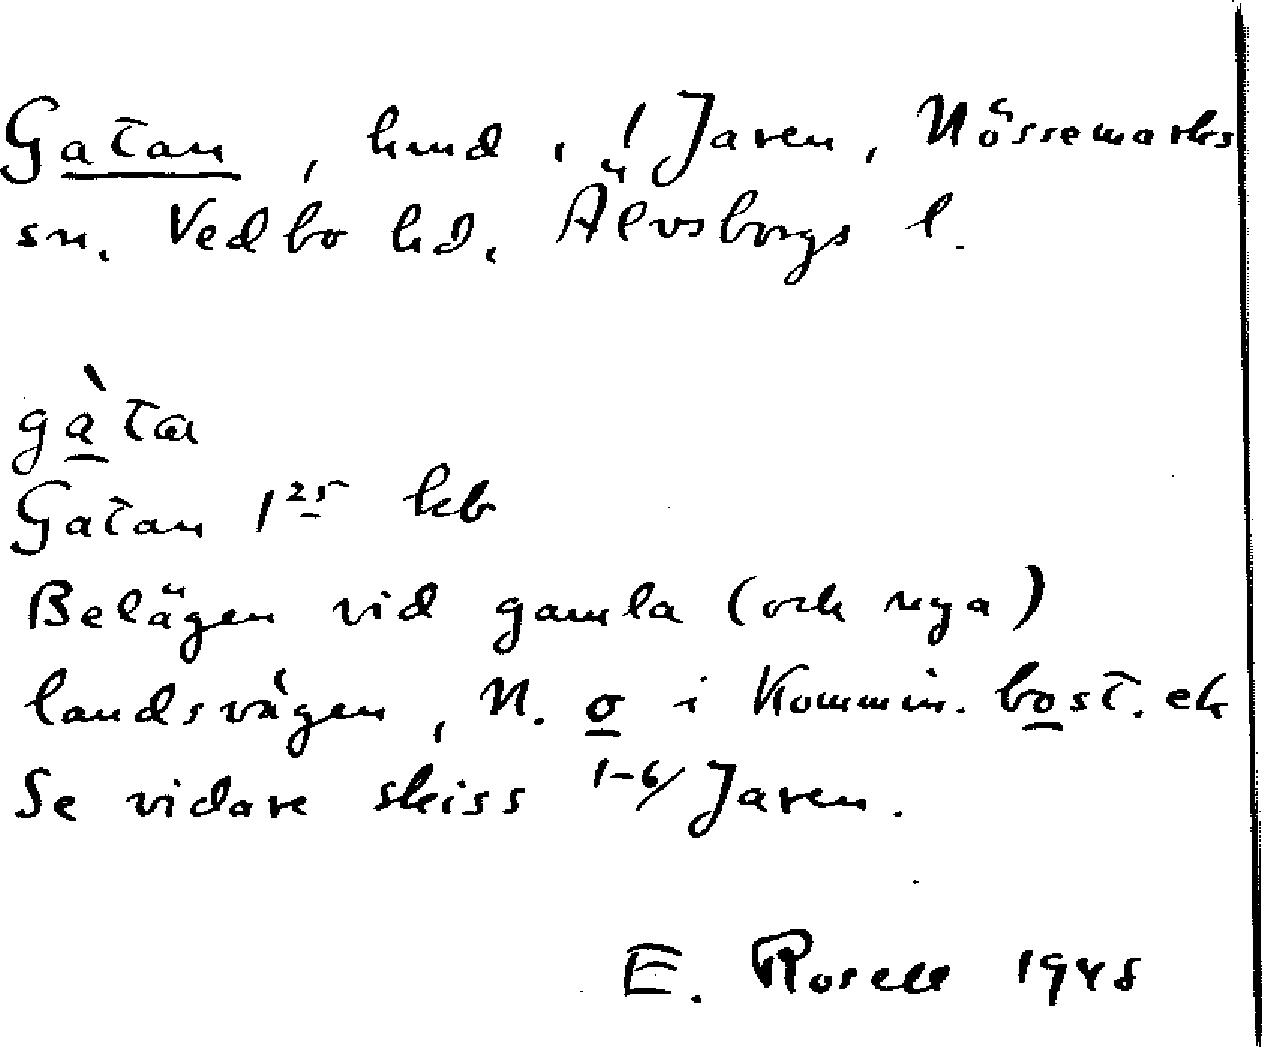 Gatan, hmd, 1 Jaren, Nössemarks
sn. Vedbo hd. Älvsborgs l.
gàta
Gatan 1²⁵ kb
Belägen vid gamla (och nya)
landsvägen, N. o i Kommin. bost. ek
Se vidare skiss 1-6/ Jaren.
E. Rosell 1948